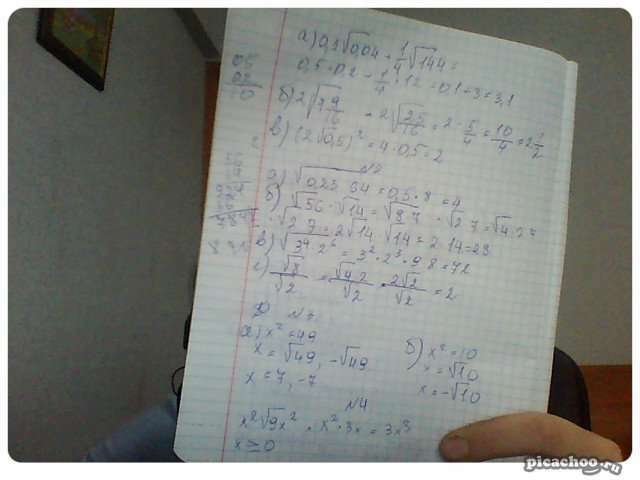 а) 0,5√0,04 + 1/4 √144 =
0,5·0,2 + 1/4 · 12 = 0,1+3=3,1
б) 2√1 9/16 = 2√25/16 = 2 · 5/4 = 10/4 = 2 1/2
в) (2√0,5)² = 4·0,5=2
№2
а) √0,25·64 = 0,5·8 = 4
б) √56 · √14 = √8·7 · √2·7 = √4·2·7
· √2·7 = 2√14 · √14 = 2·14=28
в) √3⁴·2⁶ = 3²·2³ = 9·8=72
г) √8/√2 = √4·2/√2 = 2√2/√2 = 2
а) x²=49
x = √49, -√49
x = 7, -7
б) x²=10
x = √10
x = -√10
№4
x²√9x² = x²·3x = 3x³
x ≥ 0
picachoo.ru